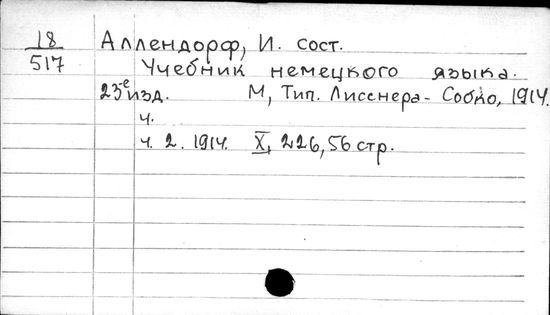 18 Аллендорф, И. сост.
517 Учебник немецкого языка.
23е изд. М, Тип. Лисснера-Собко, 1914.
ч.
ч. 2. 1914. X, 226, 56 стр.